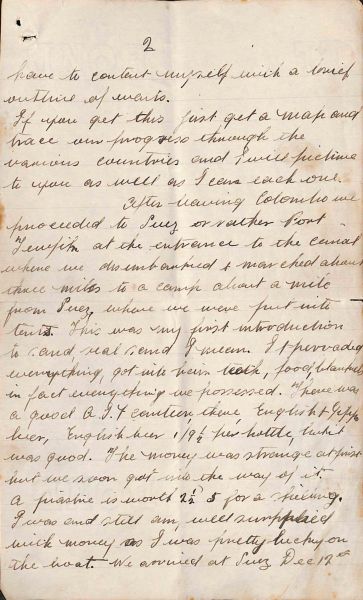 2
have to content myself with a brief
outline of events.
If you get this first get a map and
trace our progress through the
various countries and I will picture
to you as well as I can each one.
After leaving Colombo we
proceeded to Suez or rather Port
Tewfik at the entrance to the canal
where we disembarked & marched about
three miles to a camp about a mile
from Suez where we were put into
tents. This was my first introduction
to sand, real sand I mean. It pervaded
everything, got into food blankets
in fact everything we possessed. There was
a good canteen there English &
beer, English beer 1/9½ per bottle, but it
was good. The money was strange at first
but we soon got into the way of it.
A piastre is worth 2½ᵈ 5 for a shilling.
I was and still am well supplied
with money as I was pretty lucky on
the boat. We arrived at Suez Dec 12th